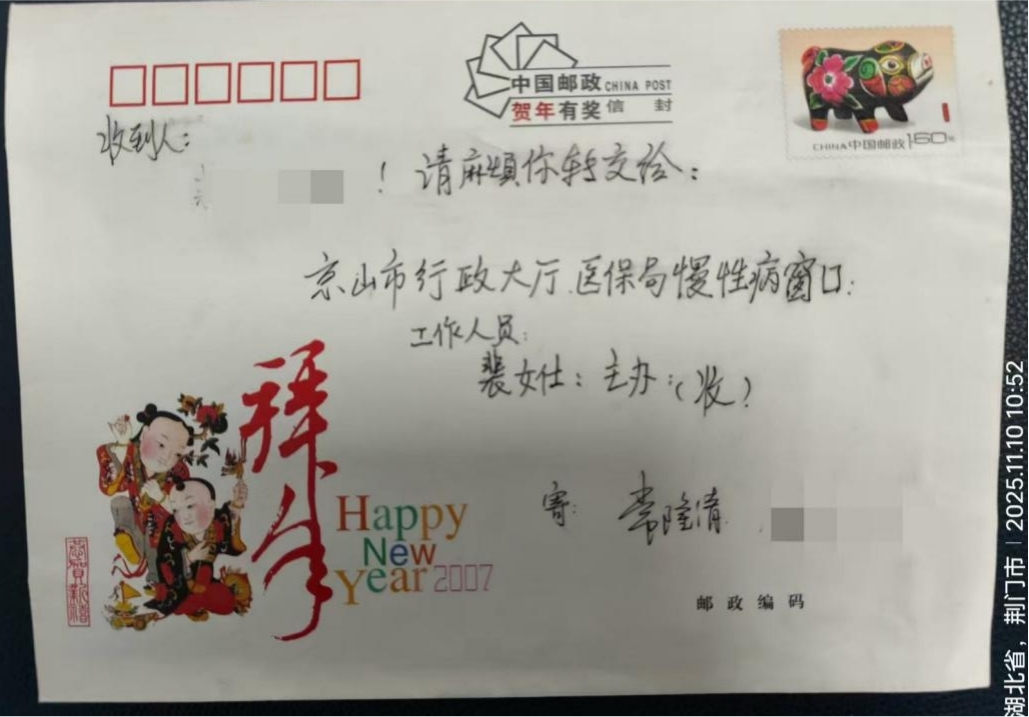 中国邮政 CHINA POST
贺年有奖信封
CHINA中国邮政160分
收到人:
! 请麻烦你转交给:
京山市行政大厅.医保局慢性病窗口:
工作人员:
裴女仕:主办:(收)
拜年
Happy
New
Year 2007
恭贺新禧
寄: 常隆清
邮政编码
湖北省,荆门市 | 2025.11.10 10:52